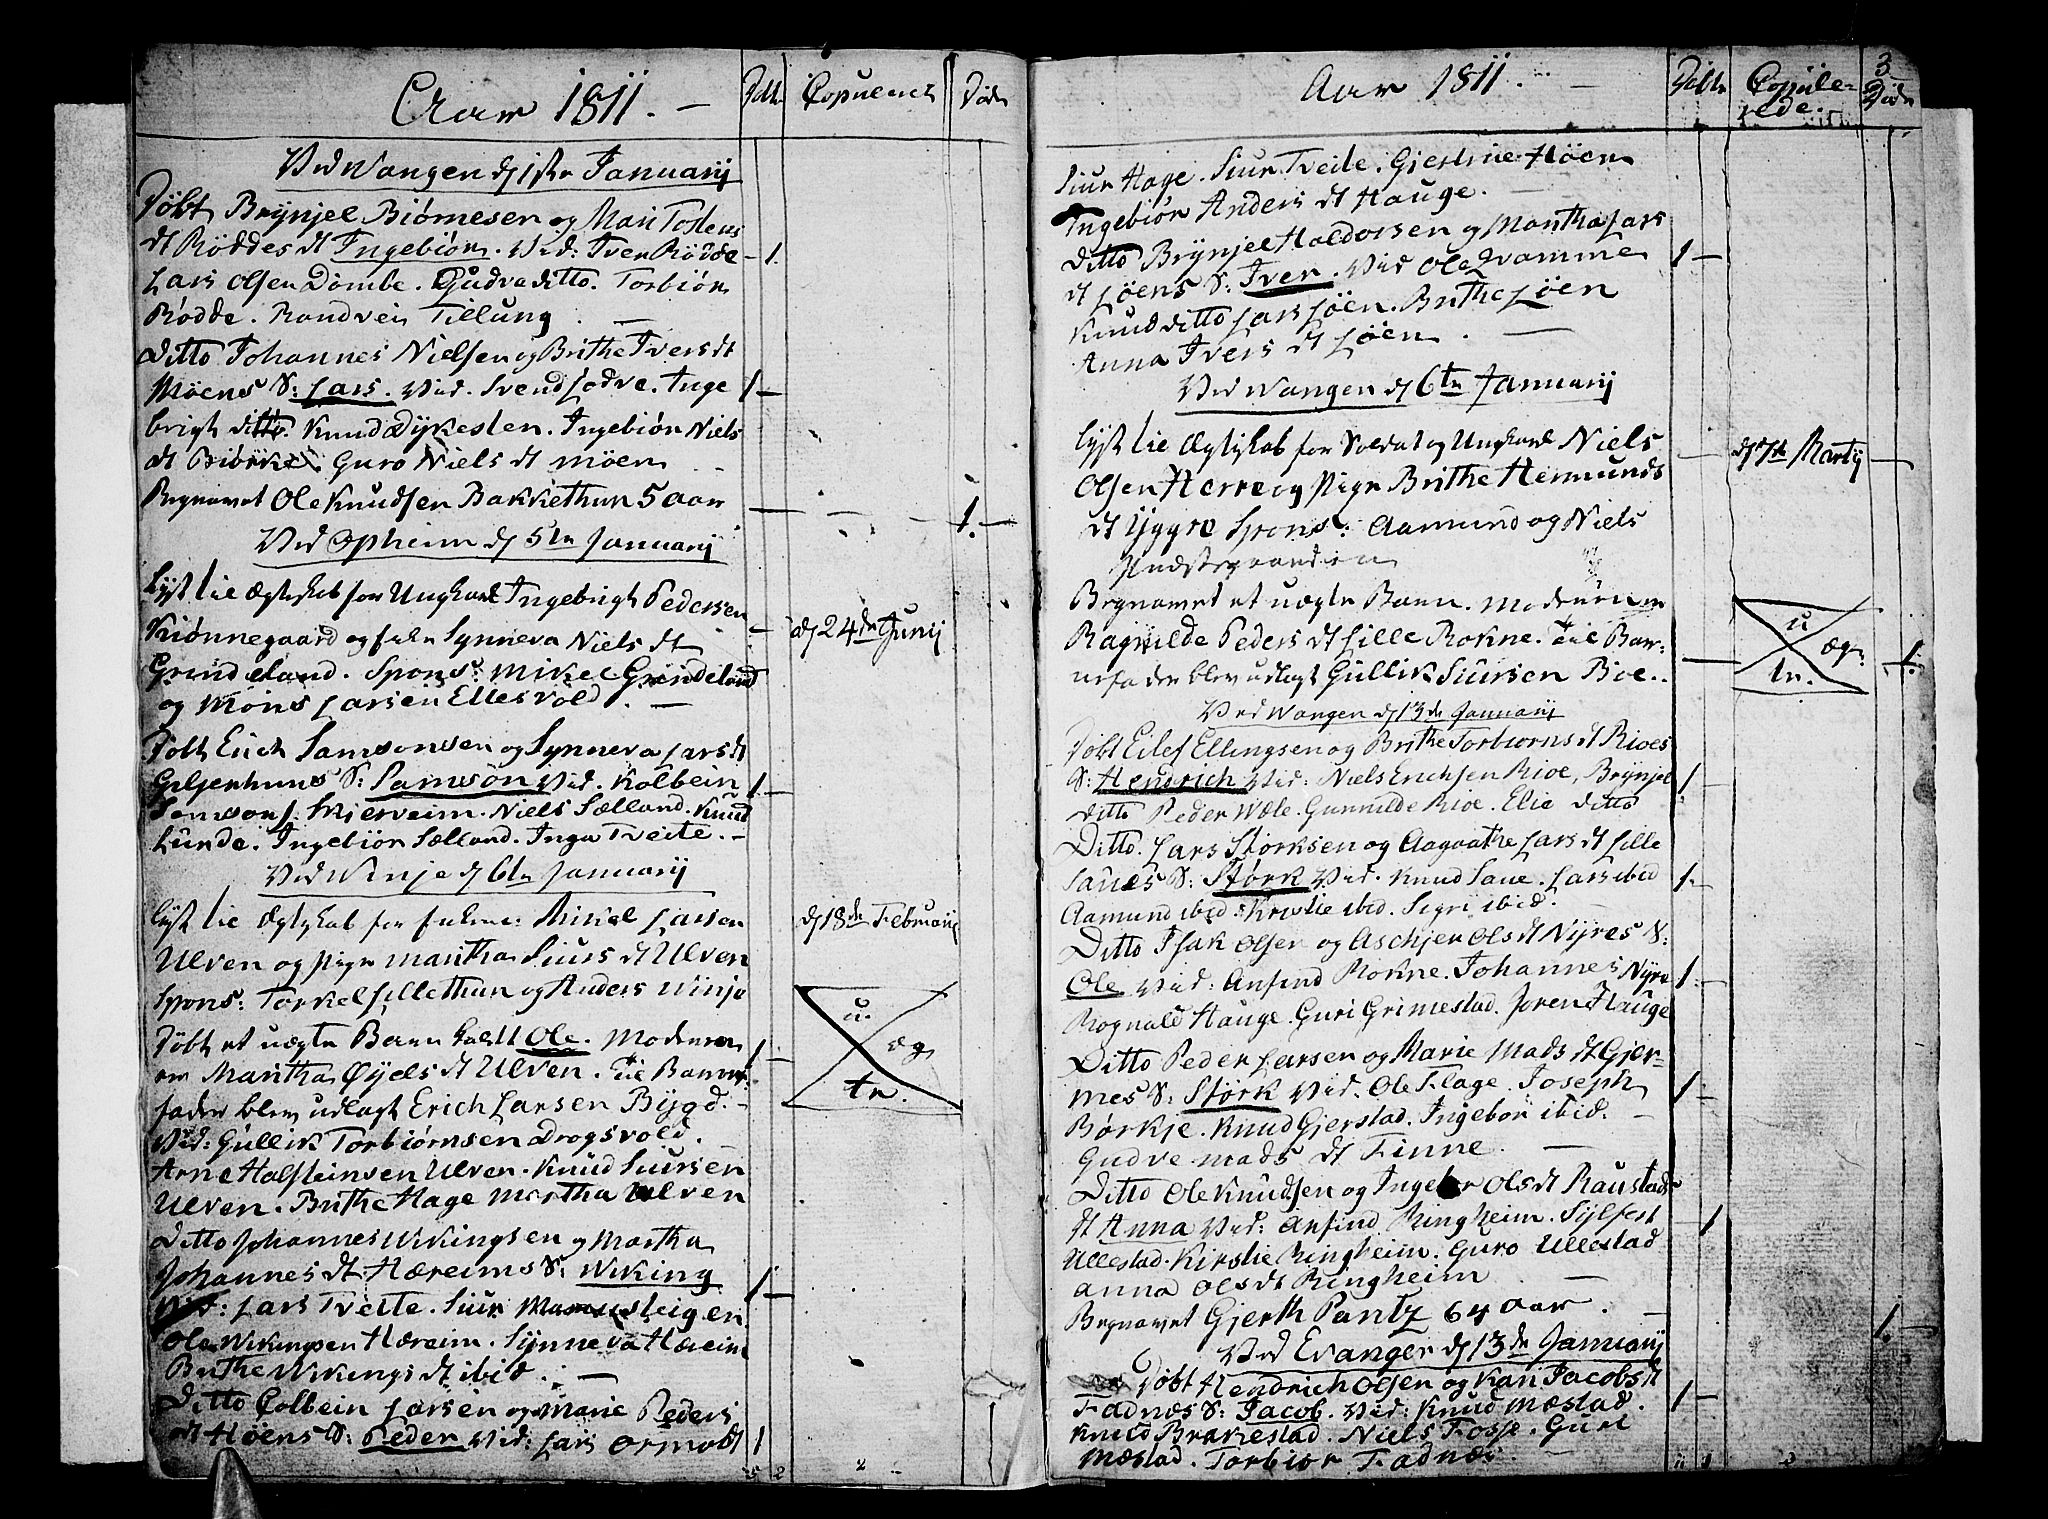 Aar 1811. Døbte Copulerede Døde
Ved Wangen d 1ste Januarij
Døbt Brynjel Biørnesen og Mari Tostens
dt Røddes dt Ingebiør. Vid: Iver Rødde 1
Lars Olsen Dombe. Gudve ditto. Torbiør
Rødde. Randvei Tillung
Ditto Johannes Nielsen og Brithe Ivers dt
Møens S: Lars. Vid. Svend Lodve. Inge 1
brigt ditto. Knud Dykesten. Ingebiør Niels
dt Guro Niels dt Møen
Begravet Ole Knudsen Bakkethun 5 aar 1.
Ved Opheim d 5te Januarij
Lyst til Ægteskab for Ungkarl Ingebrigt Pedersen
Kiønnegaard og Synneva Niels dt d 24de Junij
Grindeland. Spons: Mikel Grindeland
og Mons Larsen Ellesvold.
Døbt Erich Samsonsen og Synneva Lars dt
Giljerhuns S: Samson Vid. Kolbein 1
Samsons. Skjerveim. Niels Sælland. Knud
Lunde. Ingebiør Sælland. Inga Tveite.
Ved Winje d 6te Januarij
Lyst til Ægteskab for Mikel Larsen d 18de Februarij
Ulven og Pige Martha Siurs dt Ulven
Spons: Torkel Lillethun og Anders Winje
Døbt et uægte Barn kaldt Ole. Moderen 1 u.
er Martha Øyels dt Ulven. Til Barne æg
fader blev udlagt Erich Larsen Bygd. te.
Vid: Gullik Torbiørnsen Drogsvold.
Arne Halsteinsen Ulven. Knud Siursen
Ulven. Brithe Hage Martha Ulven
Ditto Johannes Wikingsen og Martha
Johannes dt Hæreims S: Wiking 1
Vid: Lars Tveite. Siur
Ole Wikingsen Hæreim. Synneva Hæreim
Brithe Wikings dt ibid.
Ditto Colbein Larsen og Marie Peders
dt Høens S: Peder Vid: Lars Ormobt 1
Aar 1811. Døbte Copulerede. Døde 3
Siur Hage. Siur Tveite. Gjertrue Høen
Ingebiør Anders dt Hauge.
Ditto Brynjel Haldorsen og Martha Lars
dt Løens S: Iver. Vid Ole Qvamme 1
Knud ditto Lars Løen. Brithe Løen
Anna Ivers dt Løen.
Ved Wangen d 6te Januarij
Lyst til Ægteskab for Soldat og Ungkarl Niels d 7de Martij
Olsen Herre og Pige Brithe Hermunds
dt Yggre Spons: Aamund og Niels
Præstegaarden
Begravet et uægte Barn. Moderen er u
Ragnilde Peders dt Lille Rokne. Til Bar: æg 1.
nefader blev udlagt Gullik Siursen Bioe. te.
Ved Wangen d 13de Januarij
Døbt Eilef Ellingsen og Brithe Torbiørns dt Rioes
S: Hendrich Vid: Niels Erichsen Rioe, Brynjel 1
ditto Peder Wæle. Gunnilde Rioe. Elie ditto
Ditto. Lars Størksen og Aagaathe Lars dt Lille
Saues S: Størk Vid. Knud Saue. Lars ibid 1.
Aamund ibid. Kristie ibid. Sigri ibid.
Ditto Isak Olsen og Aschjer Ols dt Nyres S:
Ole Vid: Anfind Rokne. Johannes Nyre 1.
Rognald Hauge. Guri Grimestad. Joren Hauge
Ditto Peder Larsen og Marie Mads dt Gjer-
mes S: Størk Vid. Ole Flage. Joseph 1
Børkje. Knud Gjerstad. Ingebor ibid.
Gudve Mads dt Finne.
Ditto Ole Knudsen og Ingebor Ols dt Raustads
dt Anna Vid: Anfind Ringheim. Sylfest 1
Ullestad. Kirstie Ringheim. Guro Ullestad
Anna Ols dt Ringheim
Begravet Gjerth Pantz 64 aar. 1.
Ved Evanger d 13de Januarij
Døbt Hendrich Olsen og Kari Jacobs dt
Fadnæs S: Jacob. Vid: Knud Mæstad. 1
Knud Brakestad. Niels Fosse. Guri
Mæstad. Torbiør Fadnæs.